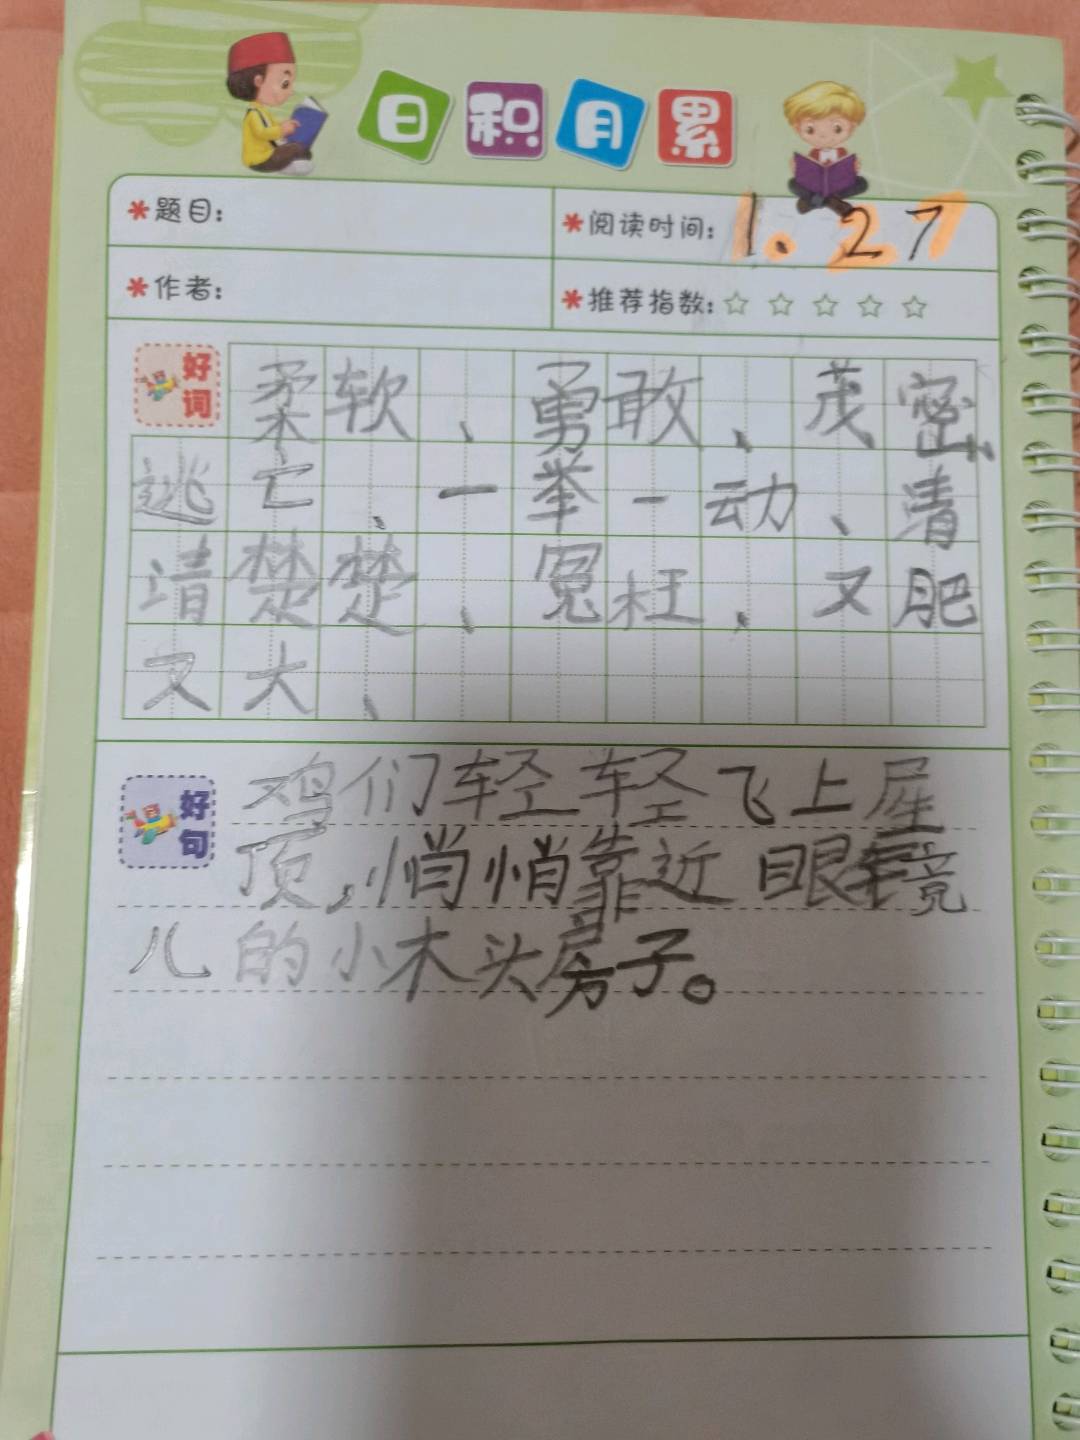 日积月累
题目：
阅读时间：1.27
作者：
推荐指数：☆☆☆☆☆
好词
柔软、勇敢、茂密、
逃亡、一举一动、清
清楚楚、冤枉、又肥
又大、
好句
鸡们轻轻飞上屋
顶，悄悄靠近眼镜
儿的小木头房子。